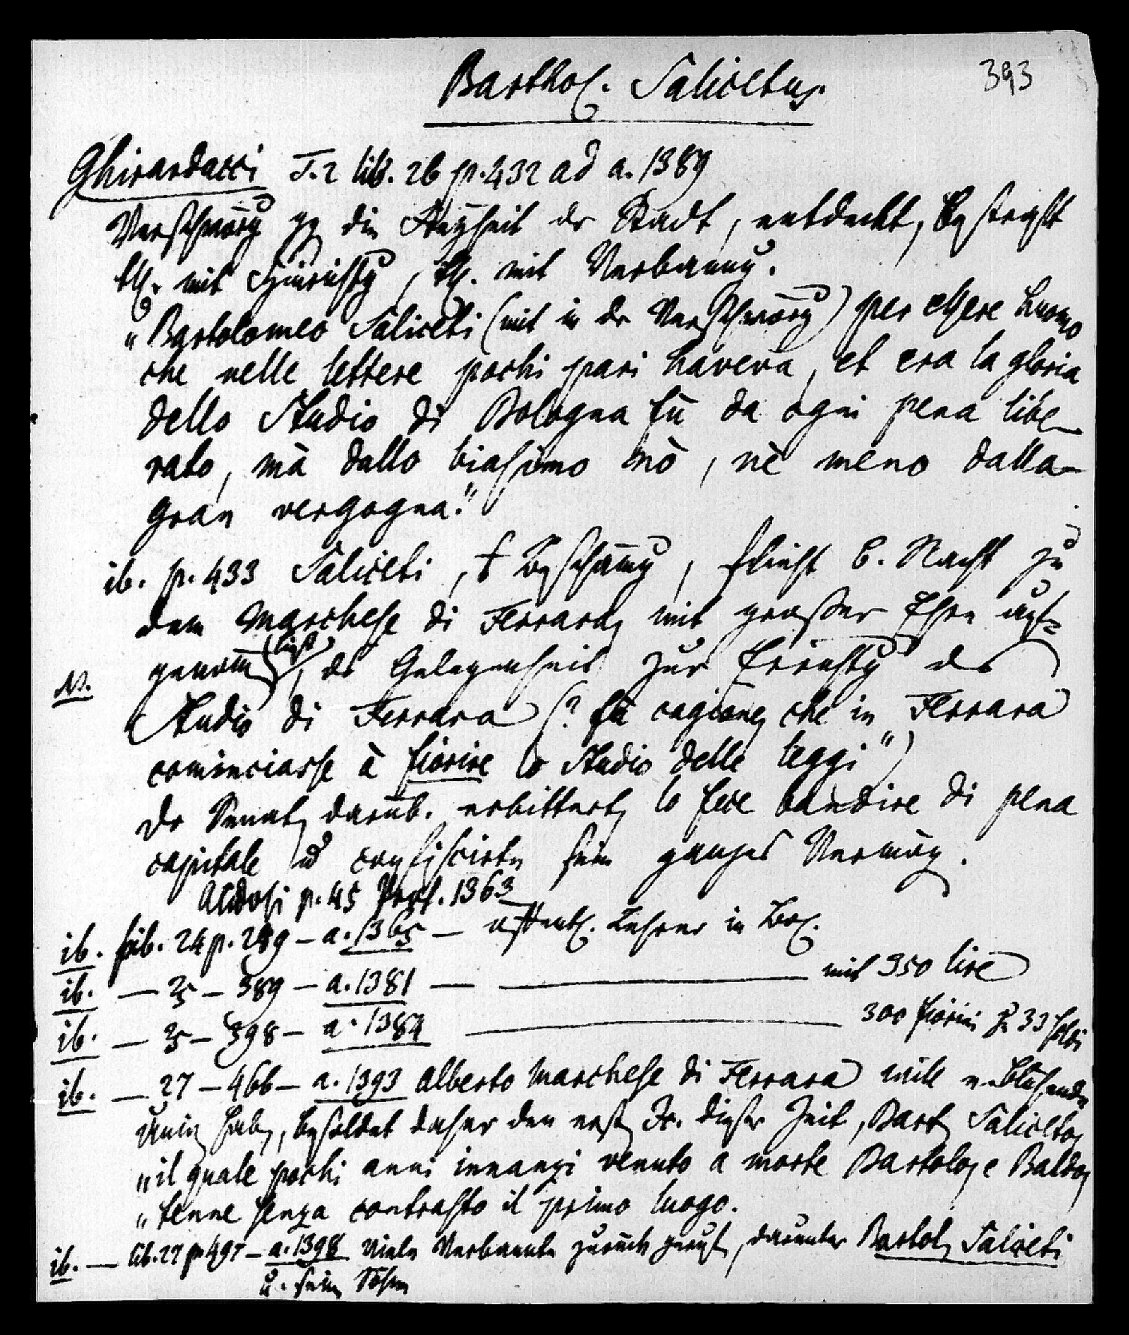 Barthol. Salicetus.
393
Ghirardacci T. 2 lib. 26 p. 432 ad a. 1389
Verschwörg gg die Freyheit der Stadt, entdeckt,
tls. mit Hinrichtg, tls. mit Verbanng.
„Bartolomeo Saliceti (mit in der Verschwörg) per essere huomo
che nelle lettere pochi pari haveva, et era la gloria
dello Studio di Bologna fù da ogni pena libe-
rato, mà dallo biasimo nò, nè meno dalla
gran vergogna."
ib. p. 433 Saliceti, Beschämg, flieht b. Nacht zu
dem Marchese di Ferrara, mit grosser Ehre auf-
genom̅, der Gelegenheit zur Erricht̅g des
NB.
Studio di Ferrara (? fù cagione, che in Ferrara
cominciasse à fiorire lo Studio delle leggi")
Der Senat, darüb. erbittert, lo fece bandire di pena
capitale u confiscirte sein ganzes Vermög.
Alidosi p. 45 Prof. 1363
ib. lib. 24 p. 289 – a. 1365 – öffentl. Lehrer in Bol.
ib. — 25 – 389 – a. 1381 — mit 350 lire
ib. — 25 – 398 – a. 1384 300 fiorini z 33 soldi
ib. — 27 – 466 – a. 1393 Alberto Marchese di Ferrara will e. blühende
Univ. hab, besoldet daher den erst JC. dieser Zeit, Bart. Saliceto,
„il quale pochi anni innanzi venuto a morte Bartolo, e Baldo,
„tenne senza contrasto il primo luogo.
ib. — lib. 27 p 497 – a. 1398 Viele Verbannte zurück geruf, darunter Bartol. Saliceti
u. seine Söhne